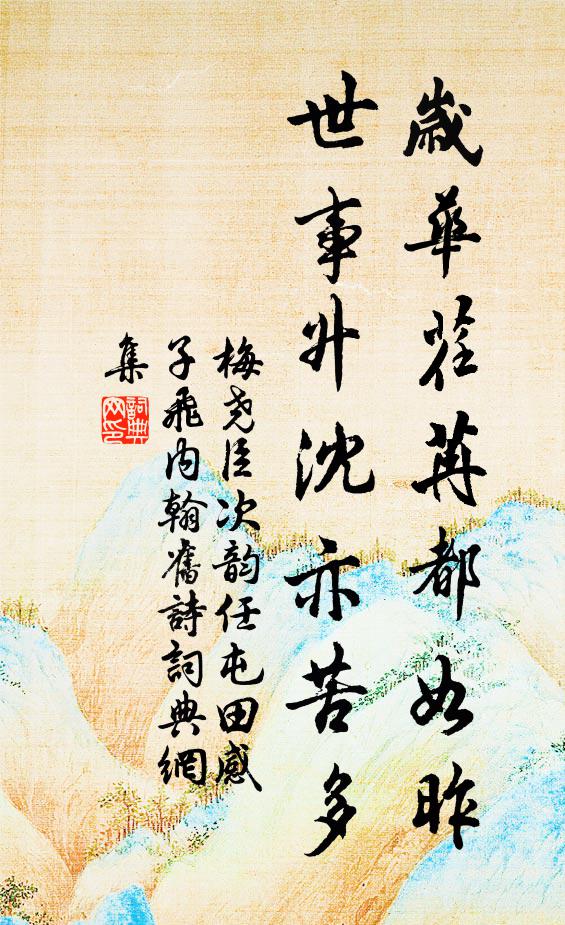 歲華荏苒都如昨
世事升沈亦苦多
梅尧臣次韵任屯田感
子飛内翰舊詩詞典網
集
詞典網印